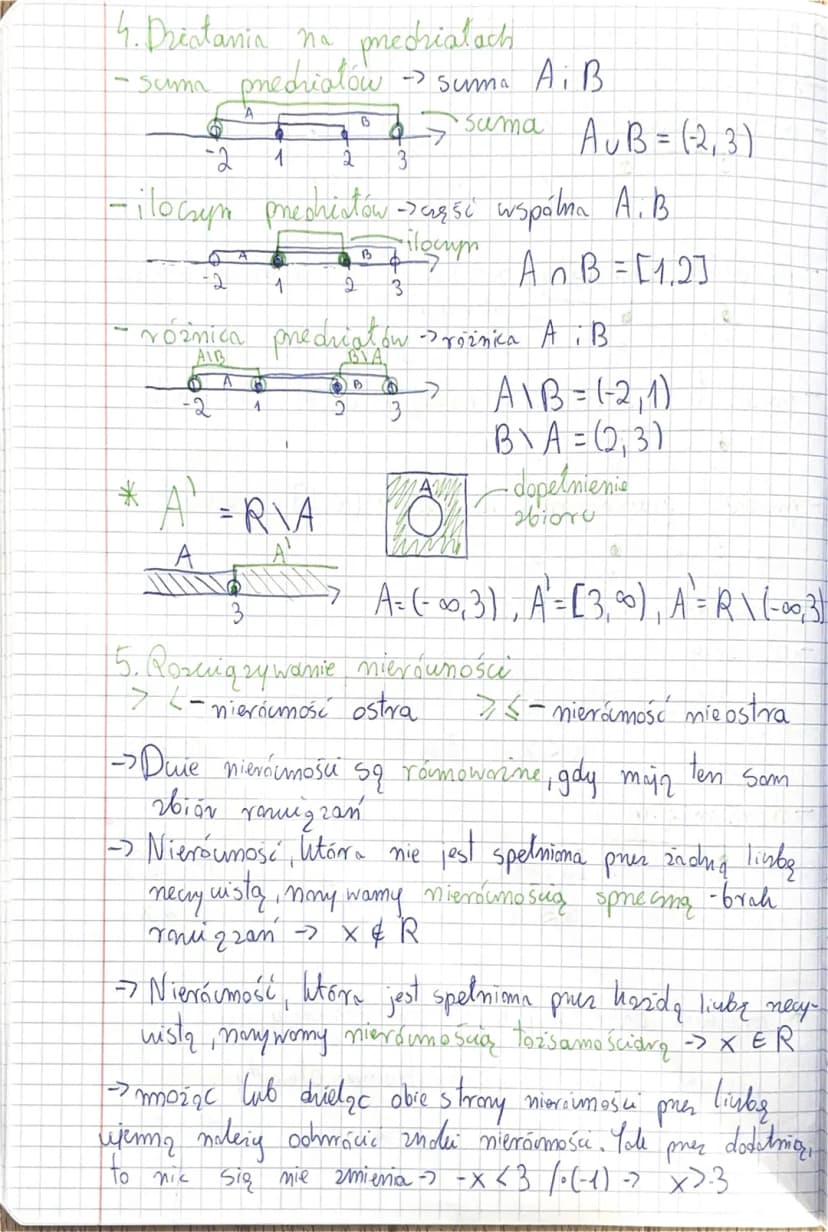 4. Działania na przedziałach
- suma przedziałów -> suma A i B
A B suma A∪B = (-2, 3)
-2 1 2 3
- iloczyn przedziałów -> część wspólna A i B
A B iloczyn A ∩ B = [1,2]
-2 1 2 3
- różnica przedziałów -> różnica A i B
A\B B\A
A B A\B = (-2,1)
-2 1 2 3
B\A = (2,3)
* A' = R\A A dopełnienie
zbioru
A A'
3 A = (-∞,3), A' = [3,∞), A' = R\(-∞,3)
5. Rozwiązywanie nierówności
> < - nierówność ostra ⩾ ⩽ - nierówność nieostra
-> Dwie nierówności są równoważne, gdy mają ten sam
zbiór rozwiązań
-> Nierówność, która nie jest spełniona przez żadną liczbę
rzeczywistą, nazywamy nierównością sprzeczną - brak
rozwiązań -> x ∉ R
-> Nierówność, która jest spełniona przez każdą liczbę rzeczy-
wistą, nazywamy nierównością tożsamościową -> x ∈ R
-> mnożąc lub dzieląc obie strony nierówności przez liczbę
ujemną należy odwrócić znak nierówności. Jak przez dodatnią,
to nic się nie zmienia -> -x < 3 /·(-1) -> x > -3